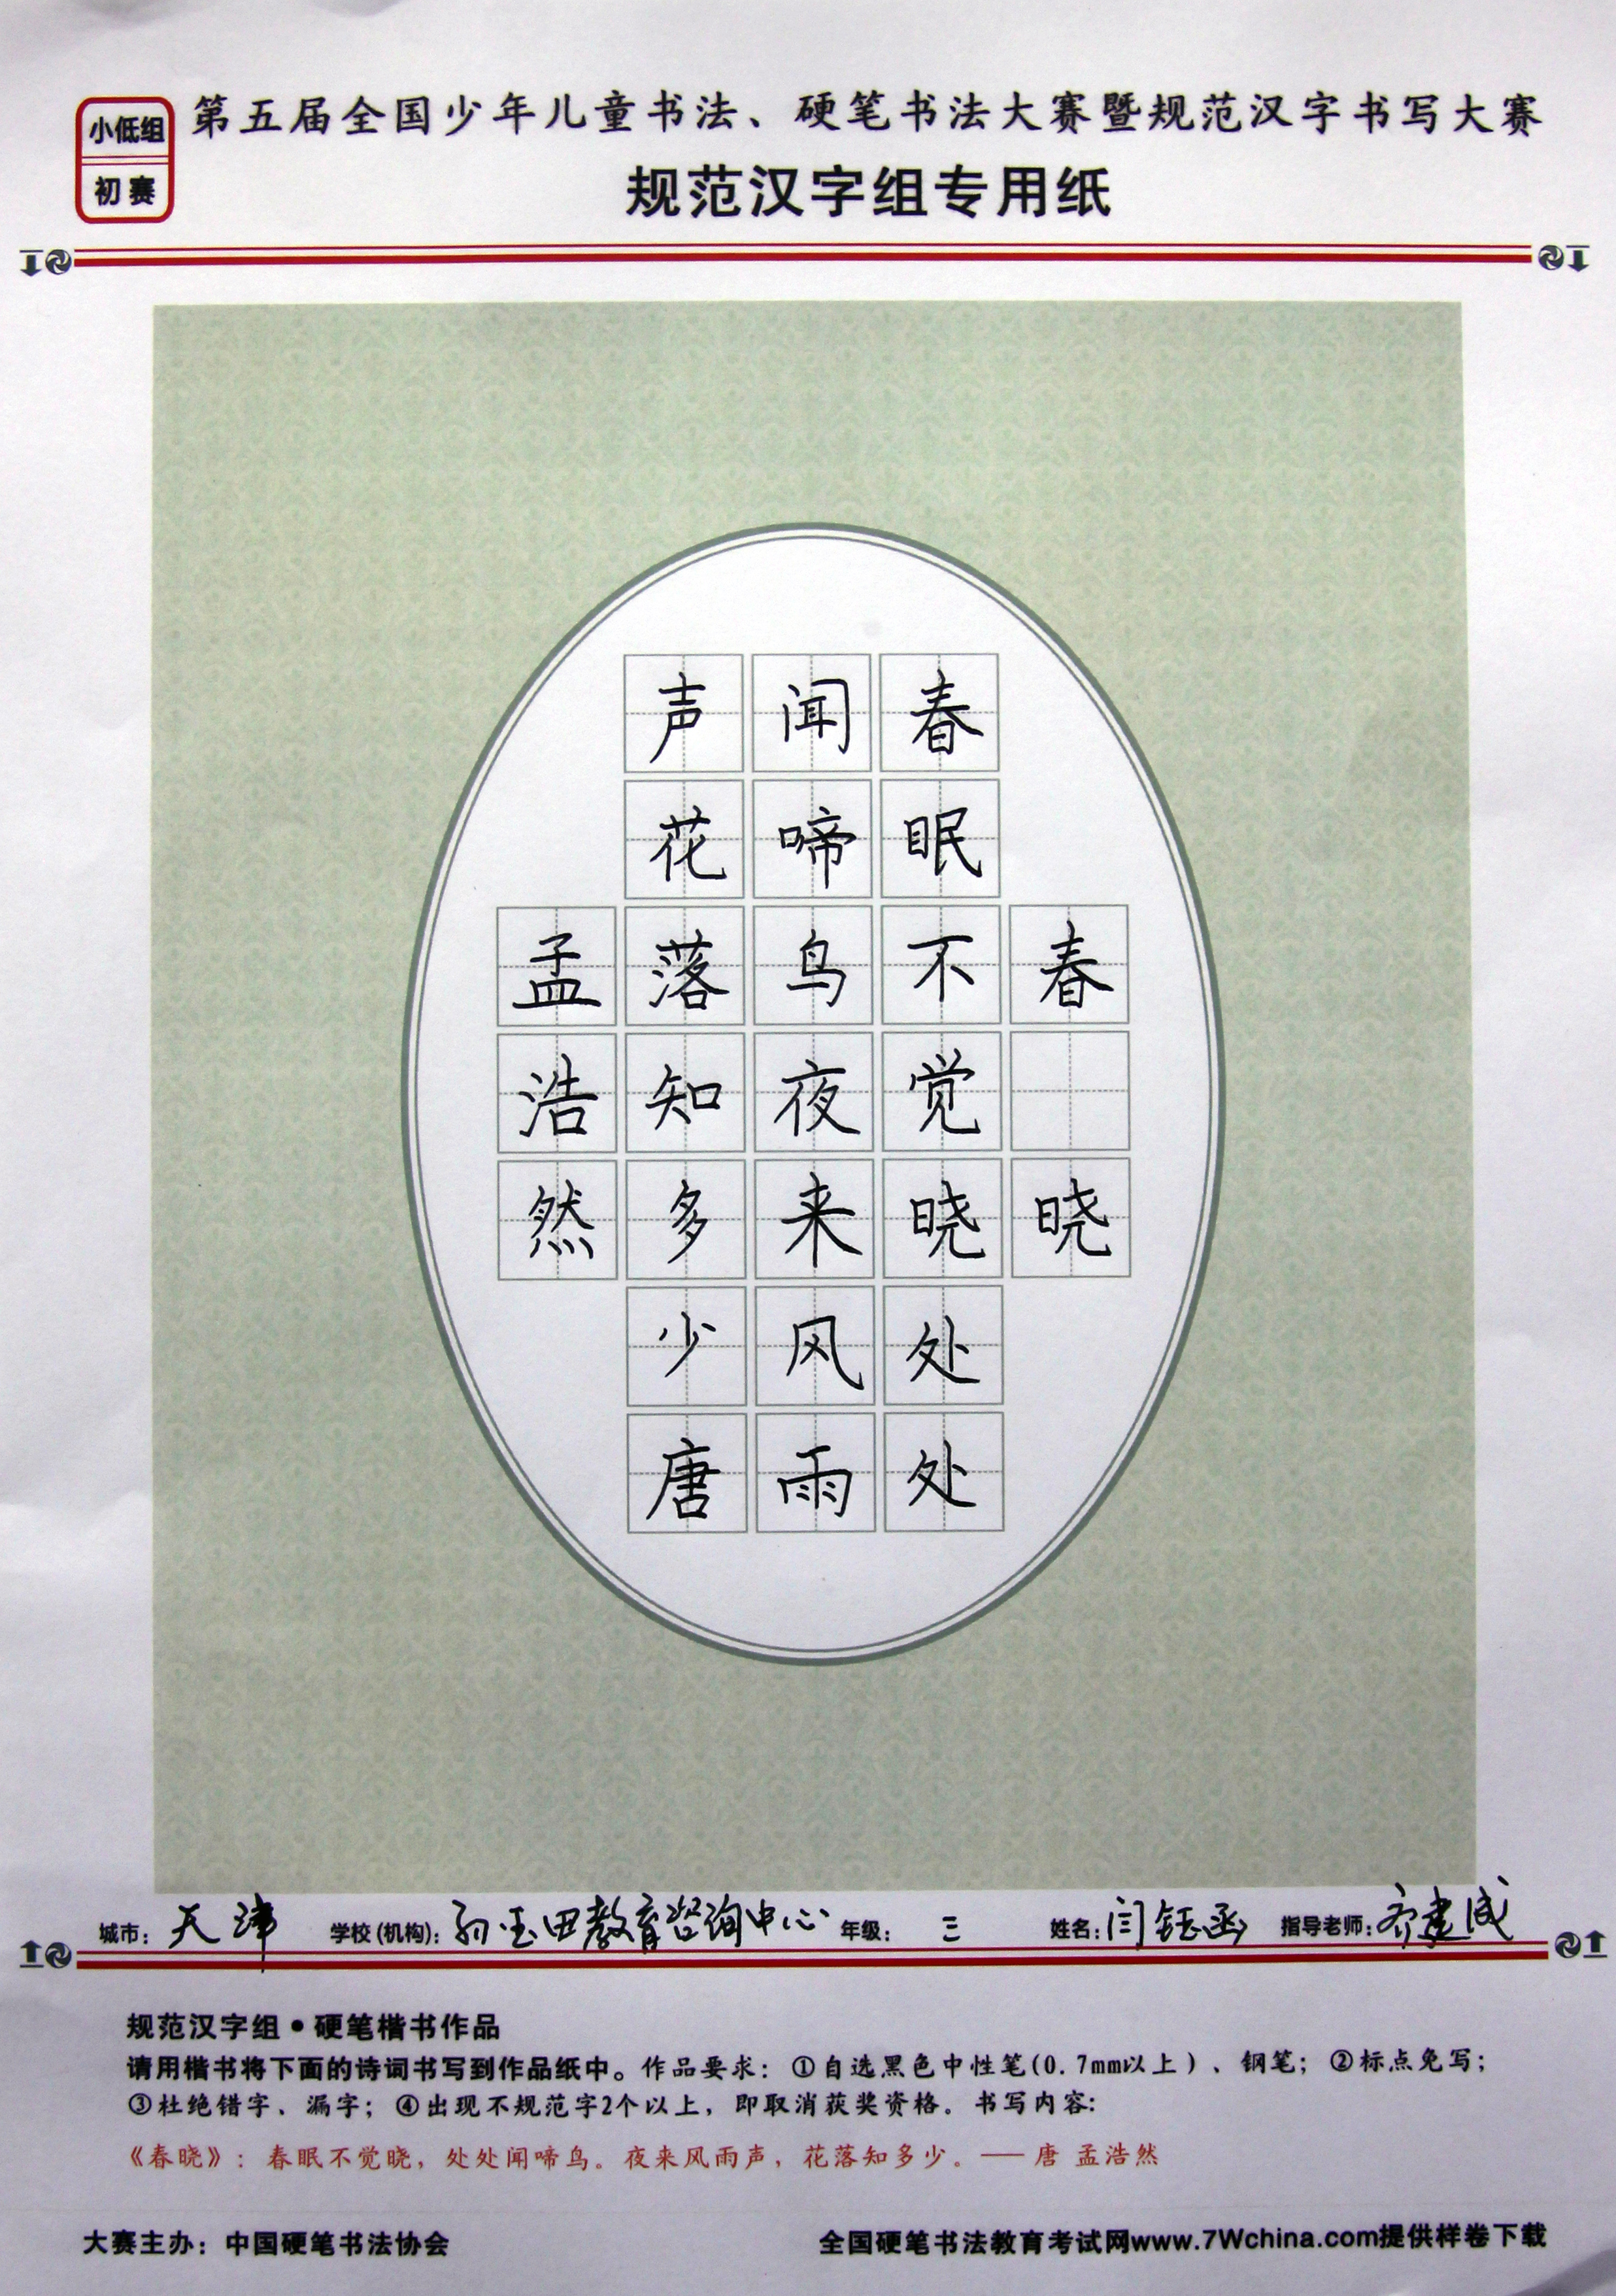 小低组
初赛
第五届全国少年儿童书法、硬笔书法大赛暨规范汉字书写大赛
规范汉字组专用纸
春晓
春眠不觉晓处处
闻啼鸟夜来风雨
声花落知多少唐
孟浩然
城市：天津 学校(机构)：孙玉田教育咨询中心 年级：三 姓名：闫钰函 指导老师：齐建成
规范汉字组•硬笔楷书作品
请用楷书将下面的诗词书写到作品纸中。作品要求：①自选黑色中性笔(0.7mm以上)、钢笔；②标点免写；
③杜绝错字、漏字；④出现不规范字2个以上，即取消获奖资格。书写内容：
《春晓》：春眠不觉晓，处处闻啼鸟。夜来风雨声，花落知多少。——唐 孟浩然
大赛主办：中国硬笔书法协会
全国硬笔书法教育考试网www.7Wchina.com提供样卷下载